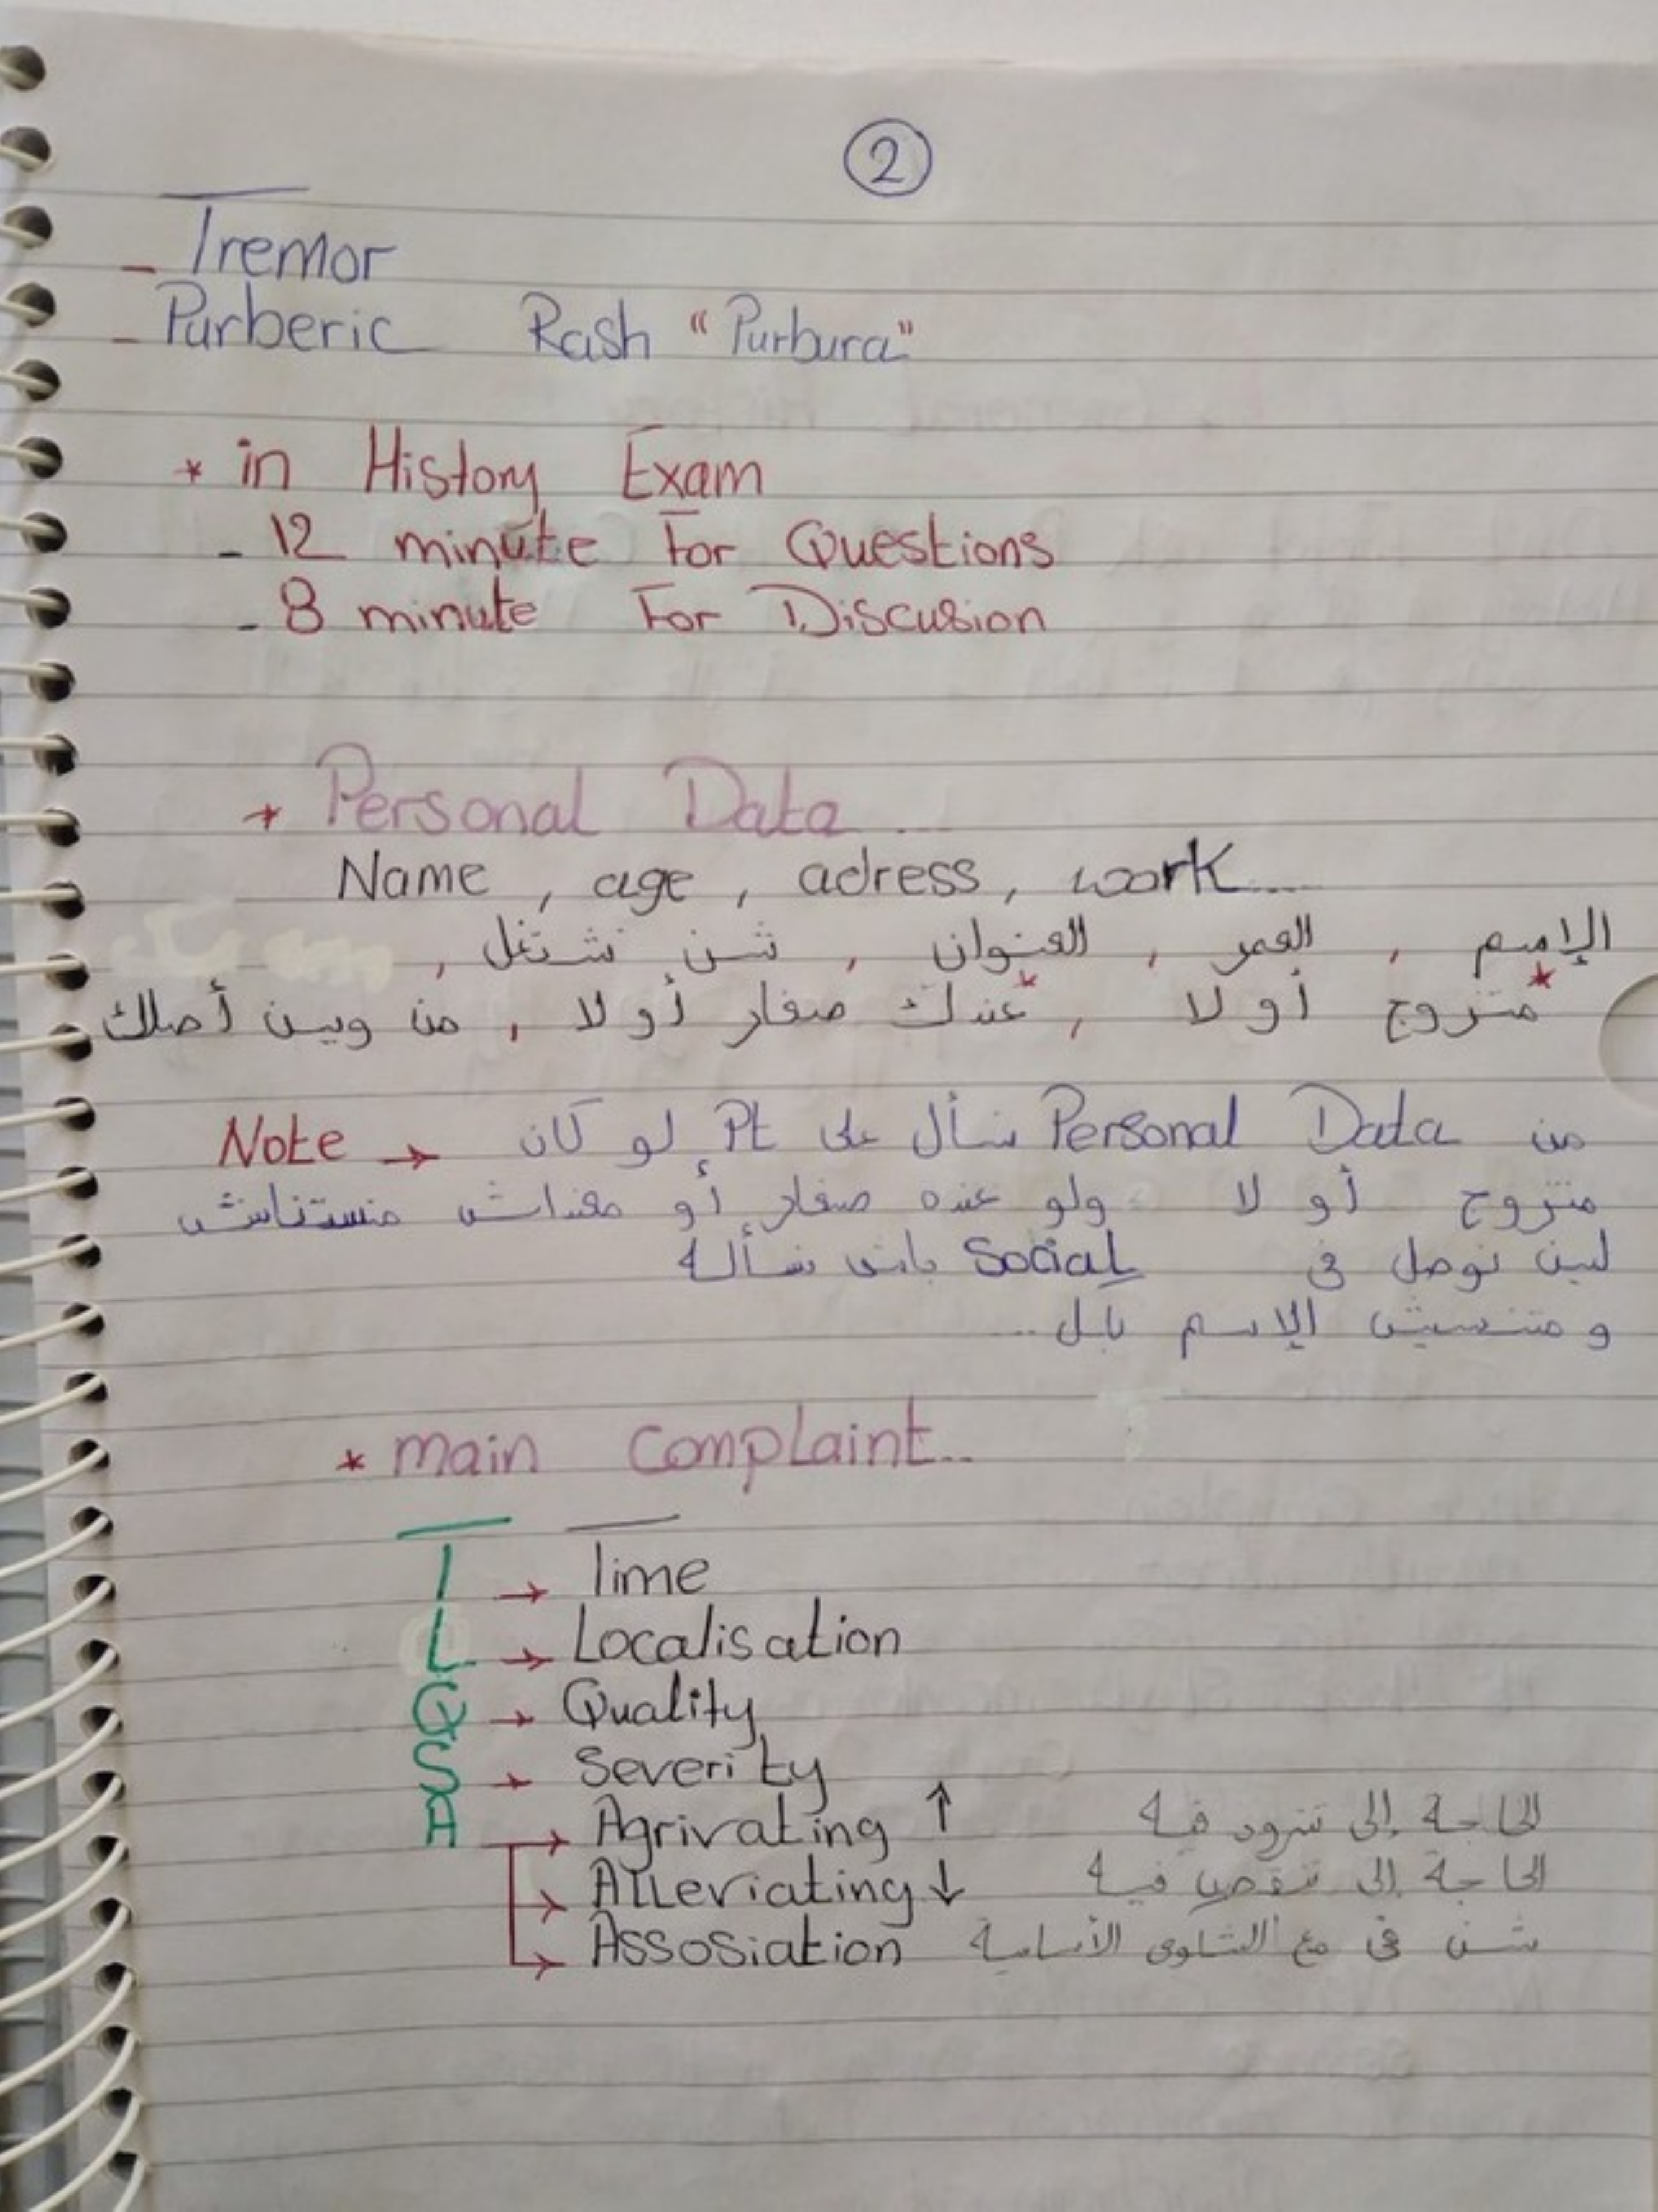 2
- Tremor
- Purberic Rash "Purbura"
* in History Exam
- 12 minute For Questions
- 8 minute For Discusion
* Personal Data ...
Name , age , adress , work ...
الإسم , العمر , العنوان , شن تشتغل ,
متزوج أو لا , عندك صغار أو لا , من وين أصلك
Note → من Personal Data نسأل على Pt لو كان
متزوج أو لا ولو عنده صغار أو معنداش منستناش
لين نوصل في Social باش نسأله
ومتنسيش الإسم ...
* main complaint ...
T → Time
L → Localisation
Q → Quality
S → Severity
A → Agrivating ↑ الحاجة إلى تزود فيه
→ Alleviating ↓ الحاجة إلى تنقص فيه
→ Assosiation شن في مع الشكوى الأساسية